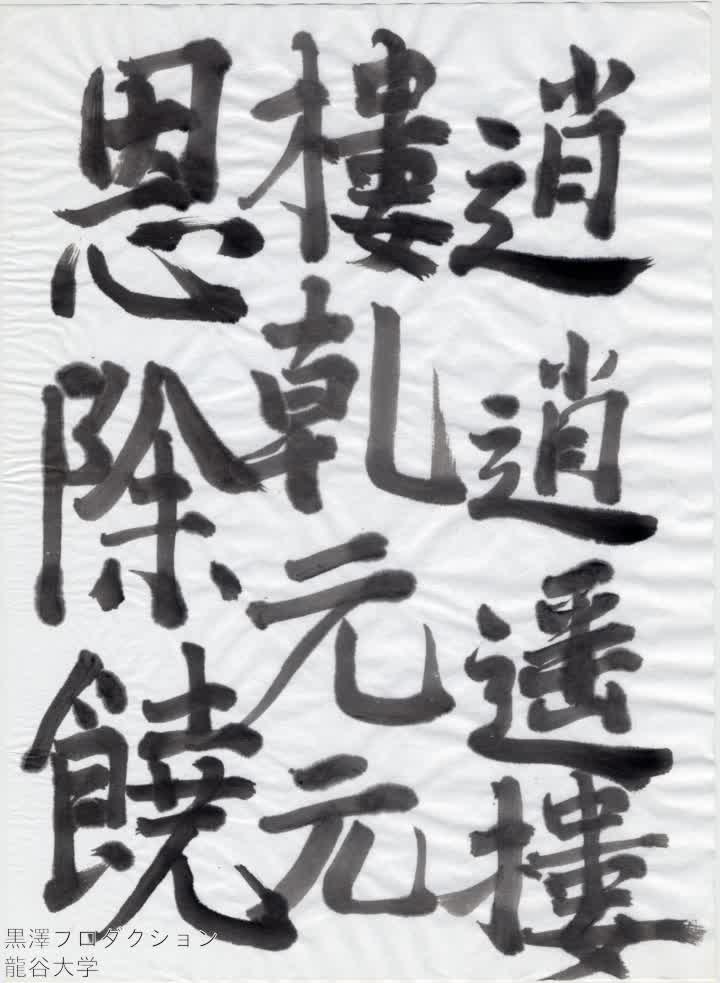 逍逍遥樓
樓乾元元
恩除饒
黒澤プロダクション
龍谷大学